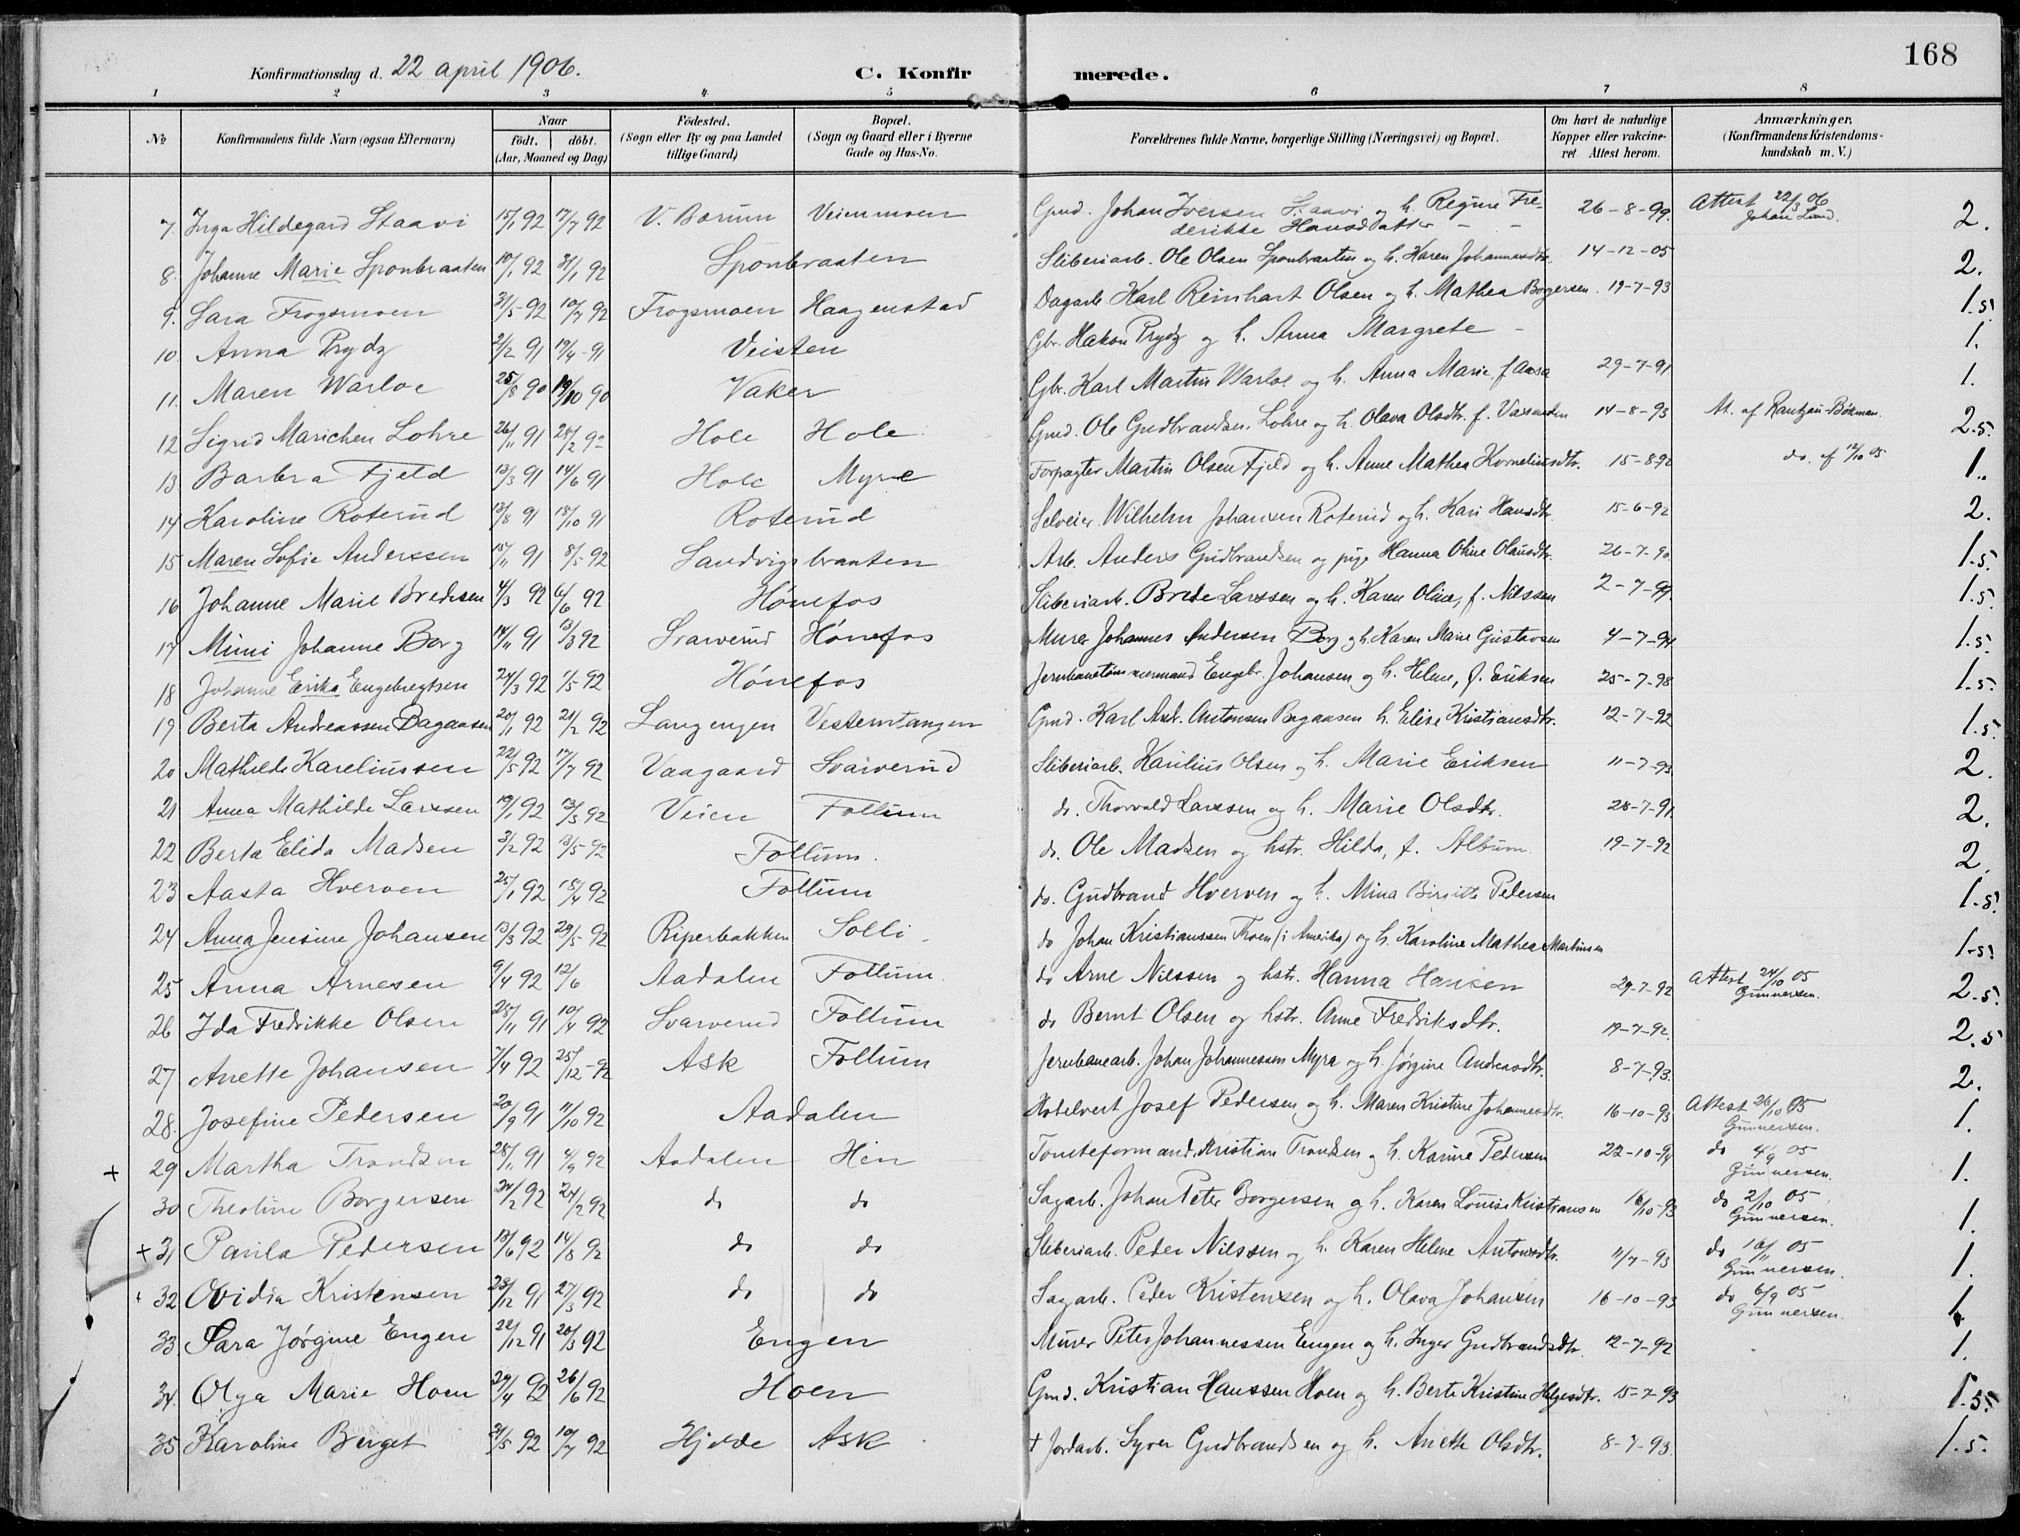 168
Konfirmationsdag d. 22 april 1906. C. Konfirmerede.
1 2 3 4. 5 6 7 8
No Konfirmandens fulde Navn (ogsaa Efternavn) Naar födt. döbt. (Aar, Maaned og Dag) Födested. (Sogn eller By og paa Landet tillige Gaard) Bopæl. (Sogn og Gaard eller i Byerne Gade og Hus-No. Forældrenes fulde Navne, borgerlige Stilling (Næringsvei) og Bopæl. Om havt de naturlige Kopper eller vakcineret Attest herom. Anmærkninger. (Konfirmandens Kristendomskundskab m. V.)
7. Inga Hildegard Staavi 15/1 92 17/7 92 V. Bærum Veienmoen Gmd. Johan Iversen Staavi og h. Regine Frederikke Hansdatter - - 26-8-99. Attest 22/3 06 Johan Lund. 2.
8. Johanne Marie Sponbraaten 10/1 92 31/1 92 Sponbraaten Sliberiarb. Ole Olsen Sponbraaten og h. Karen Johannesdtr. 14-12-05 2.
9. Sara Frogsmoen 31/5 92 10/7 92 Frogsmoen Haagenstad Dagarb. Karl Reinhart Olsen og h. Mathea Borgersen. 19-7-93 1.5.
10. Anna Prydz 2/2 91 19/4-91 Veisten Gbr. Hakon Prydz og h. Anna Margrete - 1.
11. Maren Warloe 25/8 90 19/10 90 Vaker Gbr. Karl Martin Warloe og h. Anna Marie, f. Aasa 29-7-91 1.
12 Sigrid Marichen Lohre 26/11 91 28/2 92 Hole Hole Gmd. Ole Gudbrandsen Lohre og h. Olava Olsdtr. f. 14-8-93 At. af Rantzau-Bökman. 2.5.
13. Barbra Fjeld 13/3 91 14/6 91 Hole Myre Forpagter Martin Olsen Fjeld og h. Anne Mathea Korneliusdtr. 15-8-92 do. af 12/10 05 1..
14 Karoline Roterud 13/8 91 18/10 91 Roterud Selveier Wilhelm Johansen Roterud og h. Kari Hansdtr. 15-6-92 2.
15 Maren Sofie Anderssen 15/11 91 8/5-92 Sandvigsbraaten Arb. Anders Gudbrandsen og pige Hanna Oline Olausdtr. 26-7-90. 1.5.
16 Johanne Marie Bredesen 4/3 92 6/6 92 Hønefos Sliberiarb. Brede Larssen og h. Karen Oline, f. Nilssen 2-7-99. 1.5.
17 Mimi Johanne Borg 14/11 91 13/3 92 Svarverud Hønefos Murer Johannes Andersen Borg og h. Karen Marie Gustavsen 4-7-94 1.5.
18 Johanne Erika Engebregtsen 24/3 92 1/5-92 Hønefos Jernbanetømmermand Engebr. Johansen og h. Helene, f. Eriksen 25-7-98 1.5.
19 Berta Andreassen Bagaasen 20/1 92 21/2 92 Langengen Vesterntangen Gmd. Karl Andr. Antonsen Bagaasen h. Elise Kristiansdtr. 12-7-92 1.5.
20 Mathilde Kareliussen 22/5 92 17/7 92 Vaagaard Svarverud Sliberiarb. Karelius Olsen og h. Marie Eriksen 11-7-93 2.
21 Anna Mathilde Larssen 19/1 92 13/3 92 Veien Follum do. Thorvald Larssen og h. Marie Olsdtr. 28-7-91. 2.
22 Berta Elida Madsen 3/2 92 13/5-92 Follum. do. Ole Madsen og hstr. Hilda, f. Album 19-7-92 2.
23 Aasta Hverven 25/1 92 18/4 92 Follum do. Gudbrand Hverven og h. Mina Birgitte Pedersen 1.5.
24 Anna Jensine Johansen 13/3 92 29/5-92 Riperbakken Solli do Johan Kristianssen Thoen (i Amerika) og h. Karoline Mathea Martinsen 1.5.
25 Anna Arnesen 9/4 92 12/6 Aadalen Follum. do Arne Nilssen og hstr. Hanna Hansen 29-7-92 Attest 24/10 05 Gunnersen. 2.5.
26 Ida Fredrikke Olsen 25/11 91 10/4 92 Svarverud Follum do Bernt Olsen og hstr. Anne Fredriksdtr. 19-7-92. 2.5
27 Anette Johansen 7/4 92 25/12-92 Ask Follum Jernbanearb. Johan Johannessen Myra og h. Jørgine Andreasdtr. 8-7-93. 2.
28. Josefine Pedersen 20/9 91 11/10 92 Aadalen Hotelvert Josef Pedersen og h. Maren Kristine Johannesdtr. 16-10-93 Attest 26/10 05 Gunnersen. 1.
+ 29 Martha Trondsen 28/11 91 4/9 92 Aadalen Hen Tomteformand. Kristian Trondsen og h. Karine Pedersen 22-10-94 do 4/9 05 Gunnersen. 1.
30 Theoline Borgersen 24/2 92 24/2 92 do do Sagarb. Johan Peter Borgersen og h. Karen Louise Kristiansen 16/10-93 do 2/10 05 Gunnersen. 1.
+ 31 Paula Pedersen 13/6 92 14/8 92 do do Sliberiarb. Peder Nilssen og h. Karen Helene Antonsdtr. 11/7-93 do 16/11 05 Gunnersen. 1.
+ 32 Ovidia Kristensen 28/12 91 27/3 92 do do Sagarb. Peder Kristensen og h. Olava Johansen 16-10-93 do 6/9 05 Gunnersen. 1.
33. Sara Jørgine Engen 22/12 91 20/3 92 Engen Murer Peter Johannessen Engen og h. Inger Gudbrandsdtr. 12-7-92 1.
34. Olga Marie Hoen 29/4 92 26/6 92 Hoen Gmd. Kristian Hanssen Hoen og h. Berte Kristine Helgesdtr. 15-7-93 1.5.
35 Karoline Berget 21/5 92 10/7 92 Hjelde Ask + Jordarb. Syver Gudbrandsen og h. Anette Olsdtr. 8-7-93. 1.5.